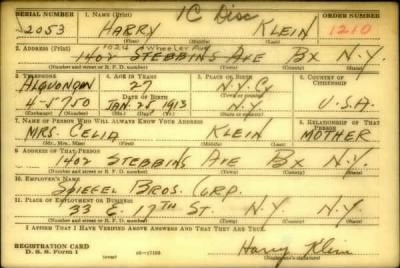 SERIAL NUMBER 1. NAME (Print) 1C Disc ORDER NUMBER
2053 HARRY KLEIN 1210
(First) (Middle) (Last)
2. ADDRESS (Print) 1024 Wheeler Ave
1402 STEBBINS AVE BX N.Y.
(Number and street or R. F. D. number) (Town) (County) (State)
3. TELEPHONE 4. AGE IN YEARS 5. PLACE OF BIRTH 6. COUNTRY OF CITIZENSHIP
ALGONQUIN 27 N.Y. Cy
DATE OF BIRTH
4-5750 JAN. 25 1913 N.Y. U.S.A.
(Exchange) (Number) (Mo.) (Day) (Yr.) (State or country)
7. NAME OF PERSON WHO WILL ALWAYS KNOW YOUR ADDRESS 8. RELATIONSHIP OF THAT PERSON
MRS. CELIA KLEIN MOTHER
(Mr., Mrs., Miss) (First) (Middle) (Last)
9. ADDRESS OF THAT PERSON
1402 STEBBINS AVE BX N.Y.
(Number and street or R. F. D. number) (Town) (County) (State)
10. EMPLOYER'S NAME
SPIEGEL BROS. CORP.
11. PLACE OF EMPLOYMENT OR BUSINESS
33 E. 17TH ST. N.Y. N.Y.
(Number and street or R. F. D. number) (Town) (County) (State)
I AFFIRM THAT I HAVE VERIFIED ABOVE ANSWERS AND THAT THEY ARE TRUE.
REGISTRATION CARD
D. S. S. Form 1 Harry Klein
(Registrant's signature)